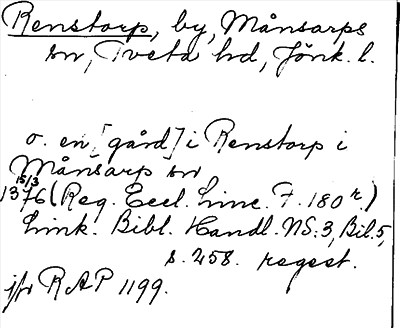 Renstorp, by, Månsarps
sn, Tveta hd, Jönk. l.
o. en [gård] i Renstorp i
Månsarp sn
15/3
1376 (Reg. Eccl. Linc. F. 180 r.)
Link. Bibl. Handl. NS: 3, Bil. 5,
s. 258. regest.
jfr RAP 1199.